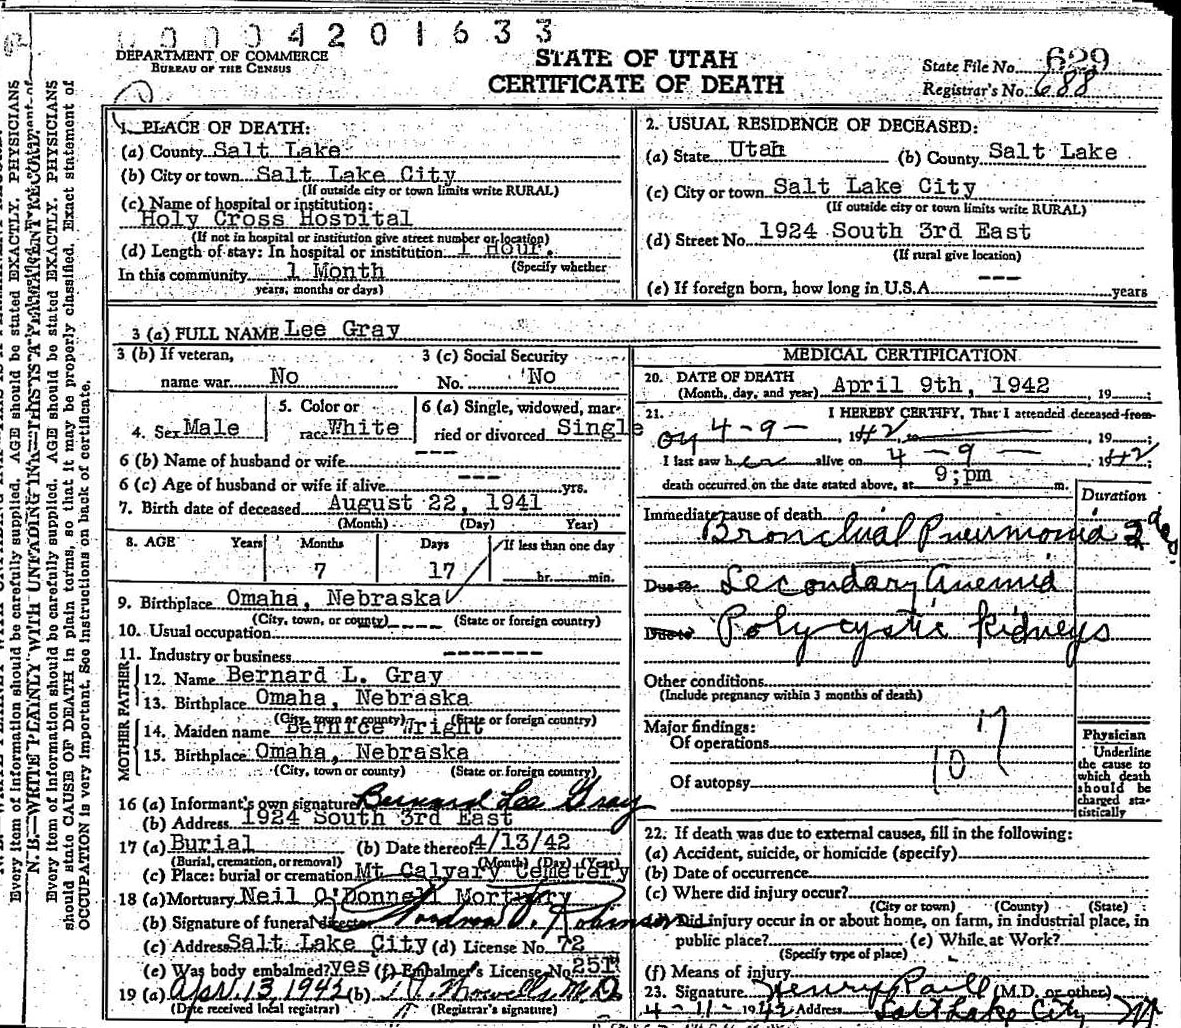 0 0 0 0 4 2 0 1 6 3 3
DEPARTMENT OF COMMERCE
BUREAU OF THE CENSUS
STATE OF UTAH
CERTIFICATE OF DEATH
State File No. 629
Registrar's No. 688
1. PLACE OF DEATH:
(a) County Salt Lake
(b) City or town Salt Lake City
(If outside city or town limits write RURAL)
(c) Name of hospital or institution:
Holy Cross Hospital
(If not in hospital or institution give street number or location)
(d) Length of stay: In hospital or institution 1 Hour.
(Specify whether
In this community 1 Month
years, months or days)
2. USUAL RESIDENCE OF DECEASED:
(a) State Utah (b) County Salt Lake
(c) City or town Salt Lake City
(If outside city or town limits write RURAL)
(d) Street No. 1924 South 3rd East
(If rural give location)
(e) If foreign born, how long in U.S.A. --- years
3 (a) FULL NAME Lee Gray
3 (b) If veteran, 3 (c) Social Security
name war No No. No
4. Sex Male
5. Color or
race White
6 (a) Single, widowed, mar-
ried or divorced Single
6 (b) Name of husband or wife ---
6 (c) Age of husband or wife if alive --- yrs.
7. Birth date of deceased August 22, 1941
(Month) (Day) Year)
8. AGE Years Months Days If less than one day
7 17 hr. min.
9. Birthplace Omaha, Nebraska
(City, town, or county) (State or foreign country)
10. Usual occupation ----
11. Industry or business -------
FATHER
12. Name Bernard L. Gray
13. Birthplace Omaha, Nebraska
(City, town or county) (State or foreign country)
MOTHER
14. Maiden name Bernice Wright
15. Birthplace Omaha, Nebraska
(City, town or county) (State or foreign country)
16 (a) Informant's own signature Bernard Lee Gray
(b) Address 1924 South 3rd East
17 (a) Burial (b) Date thereof 4/13/42
(Burial, cremation, or removal) (Month) (Day) (Year)
(c) Place: burial or cremation Mt Calvary Cemetery
18 (a) Mortuary Neil O'Donnell Mortuary
(b) Signature of funeral director
(c) Address Salt Lake City (d) License No. 72
(e) Was body embalmed? yes (f) Embalmer's License No. 251
19 (a) Apr. 13, 1942 (b) M.D.
(Date received local registrar) (Registrar's signature)
MEDICAL CERTIFICATION
20. DATE OF DEATH
(Month, day, and year) April 9th, 1942 19
21. I HEREBY CERTIFY, That I attended deceased from
on 4-9- 1942 to 19
I last saw her alive on 4-9- 1942
death occurred on the date stated above, at 9;pm m.
Duration
Immediate cause of death
Bronchial Pneumonia 2 days
Due to Secondary Anemia
Due to Polycystic kidneys
Other conditions
(Include pregnancy within 3 months of death)
Major findings:
Of operations
Of autopsy
107
17
Physician
Underline
the cause to
which death
should be
charged sta-
tistically
22. If death was due to external causes, fill in the following:
(a) Accident, suicide, or homicide (specify)
(b) Date of occurrence
(c) Where did injury occur?
(City or town) (County) (State)
Did injury occur in or about home, on farm, in industrial place, in
public place? (e) While at Work?
(Specify type of place)
(f) Means of injury
23. Signature Henry (M.D. or other)
4-11-1942 Address Salt Lake City
N.B.—WRITE PLAINLY WITH UNFADING INK—THIS IS A PERMANENT RECORD.
Every item of information should be carefully supplied. AGE should be stated EXACTLY. PHYSICIANS
should state CAUSE OF DEATH in plain terms, so that it may be properly classified. Exact statement of
OCCUPATION is very important. See instructions on back of certificate.